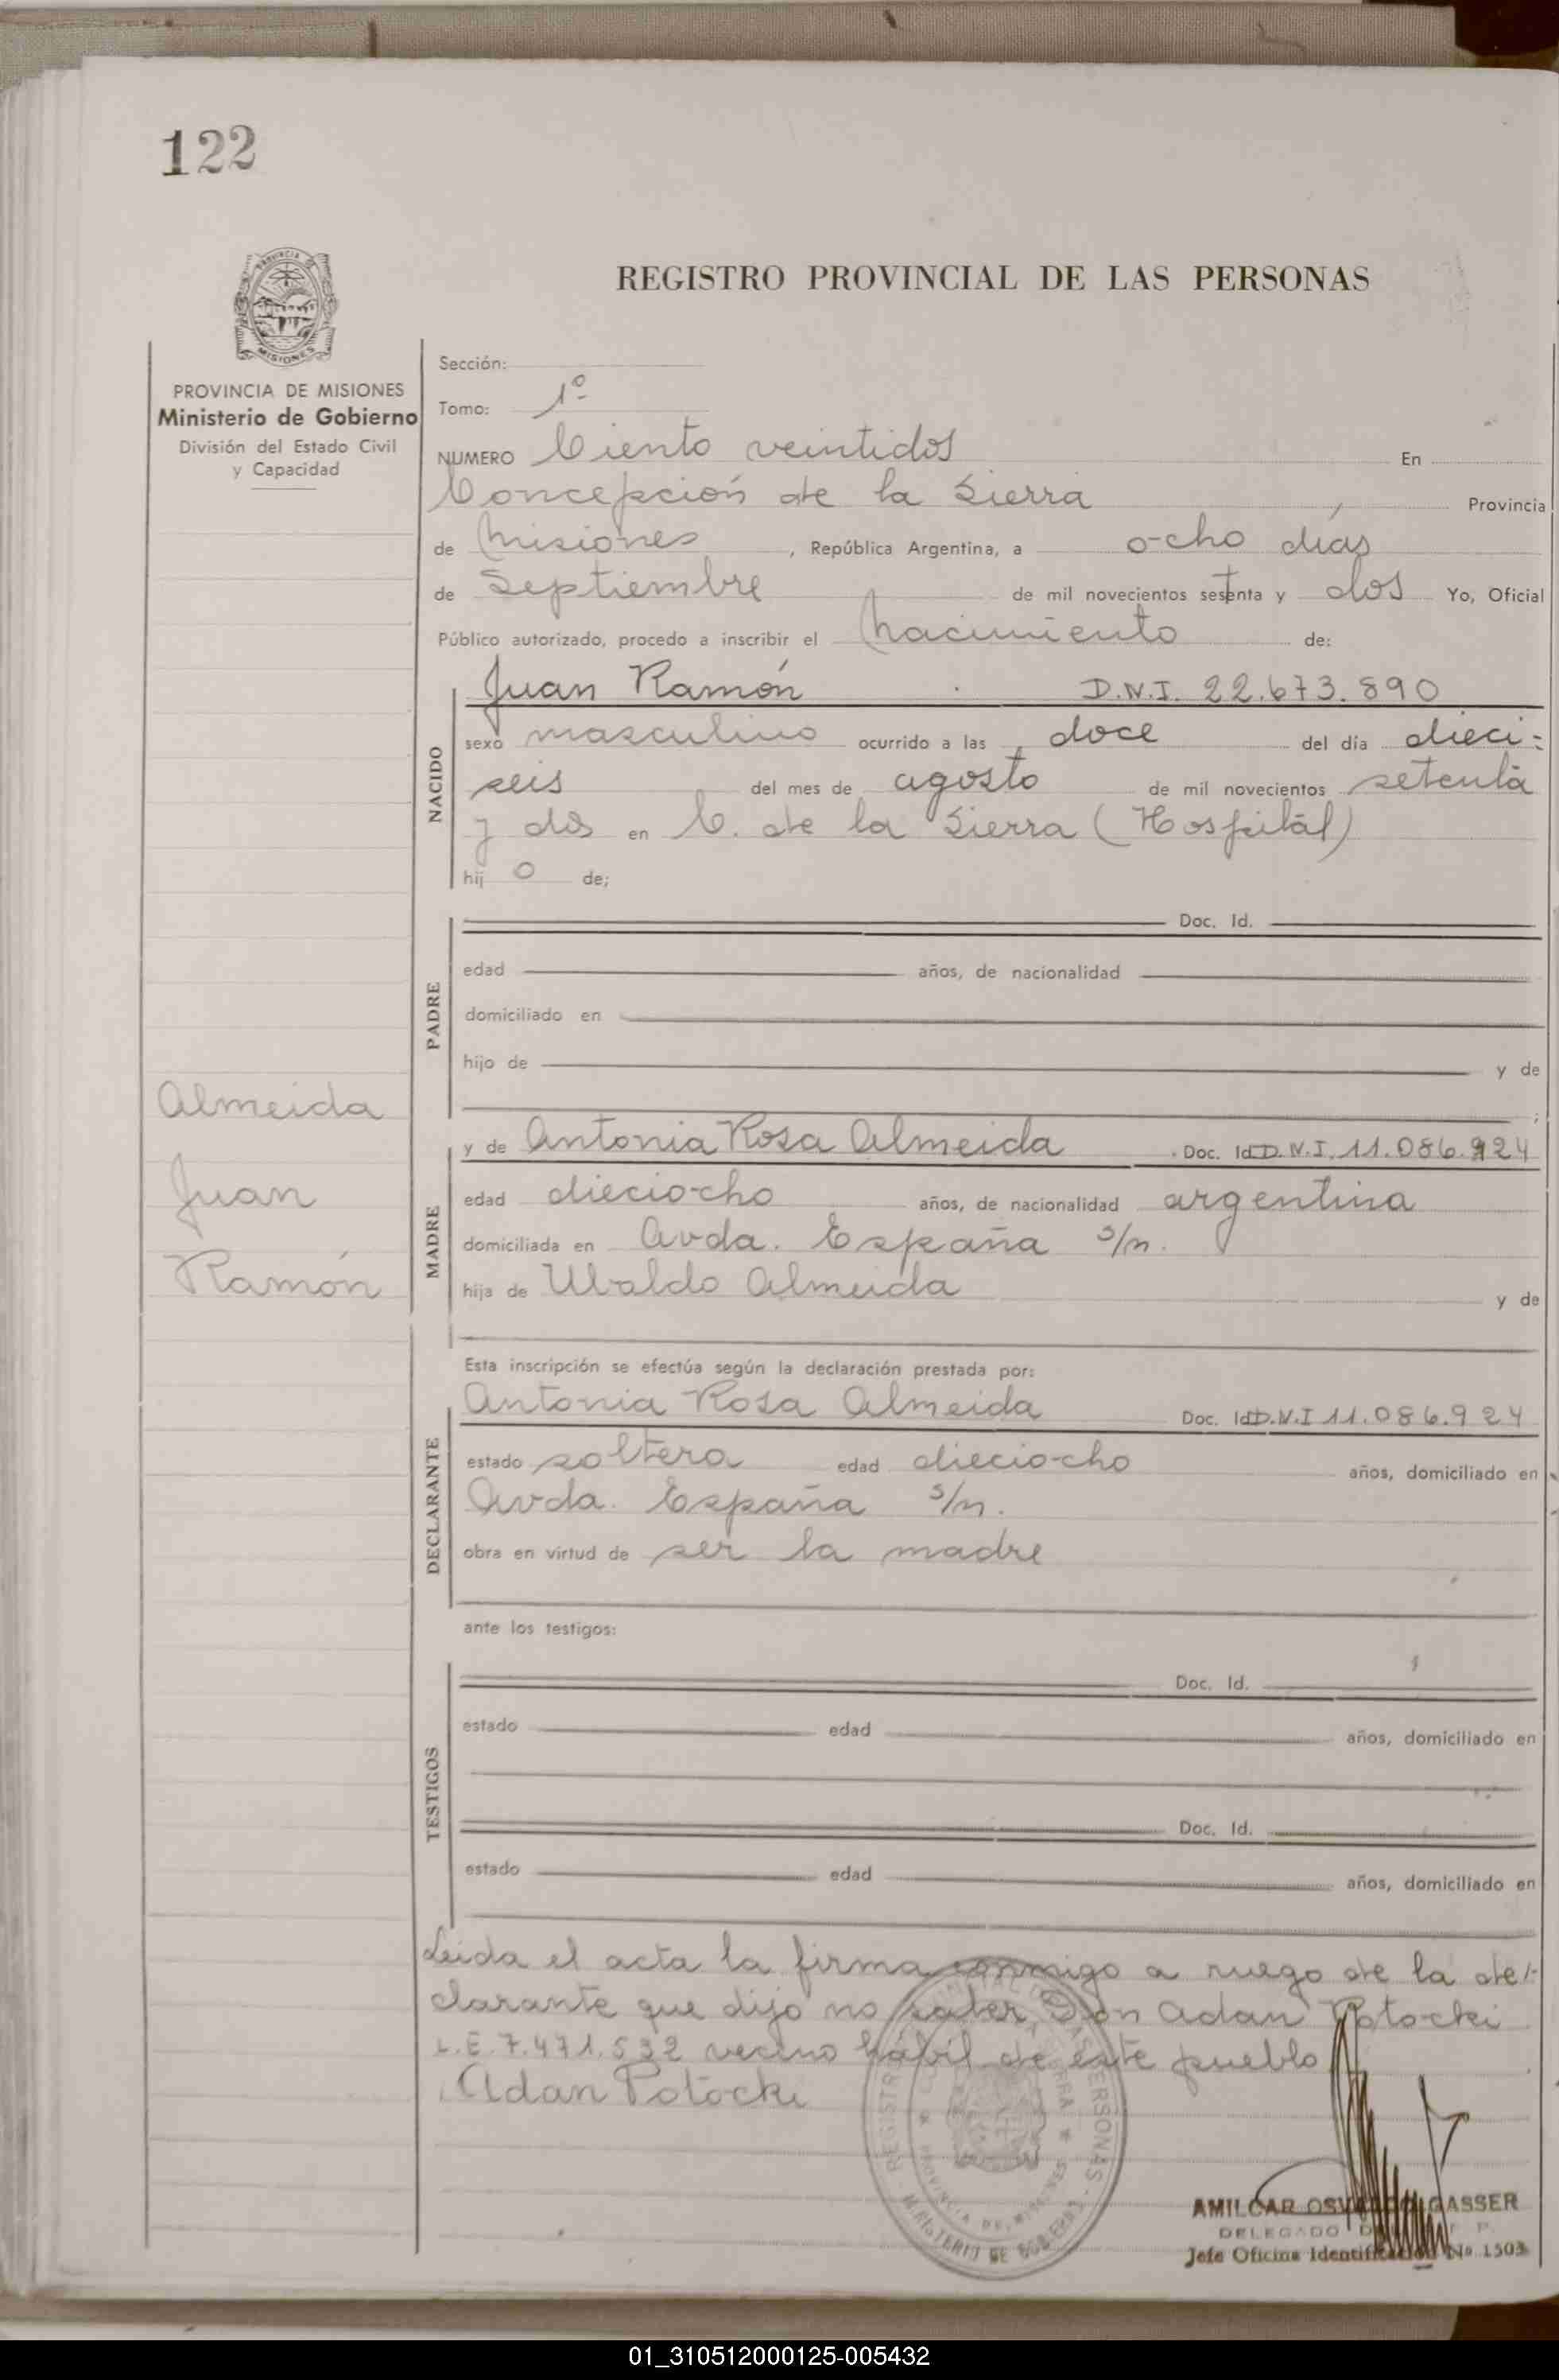 122
REGISTRO PROVINCIAL DE LAS PERSONAS
PROVINCIA DE MISIONES
Ministerio de Gobierno
División del Estado Civil
y Capacidad
Sección:
Tomo: 1º
NUMERO Ciento veintidos En
Concepción de la Sierra, Provincia
de Misiones, República Argentina, a ocho días
de Septiembre de mil novecientos setenta y dos Yo, Oficial
Público autorizado, procedo a inscribir el Nacimiento de:
NACIDO
Juan Ramón D.N.I. 22.673.890
sexo masculino ocurrido a las doce del día dieci-
seis del mes de agosto de mil novecientos setenta
y dos en C. de la Sierra (Hospital)
hij o de;
PADRE
Doc. Id.
edad años, de nacionalidad
domiciliado en
hijo de y de
;
Almeida
Juan
Ramón
MADRE
y de Antonia Rosa Almeida Doc. Id D.N.I. 11.086.924
edad dieciocho años, de nacionalidad argentina
domiciliada en Avda. España s/n.
hija de Ubaldo Almeida y de
Esta inscripción se efectúa según la declaración prestada por:
DECLARANTE
Antonia Rosa Almeida Doc. Id D.N.I 11.086.924
estado soltera edad dieciocho años, domiciliado en
Avda. España s/n.
obra en virtud de ser la madre
ante los testigos:
TESTIGOS
Doc. Id.
estado edad años, domiciliado en
Doc. Id.
estado edad años, domiciliado en
Leida el acta la firma conmigo a ruego de la de-
clarante que dijo no saber Don Adan Potocki
L.E. 7.471.532 vecino hábil de este pueblo
Adan Potocki
AMILCAR OSVALDO GASSER
DELEGADO
Jefe Oficina Identificación Nº 1503
01_310512000125-005432